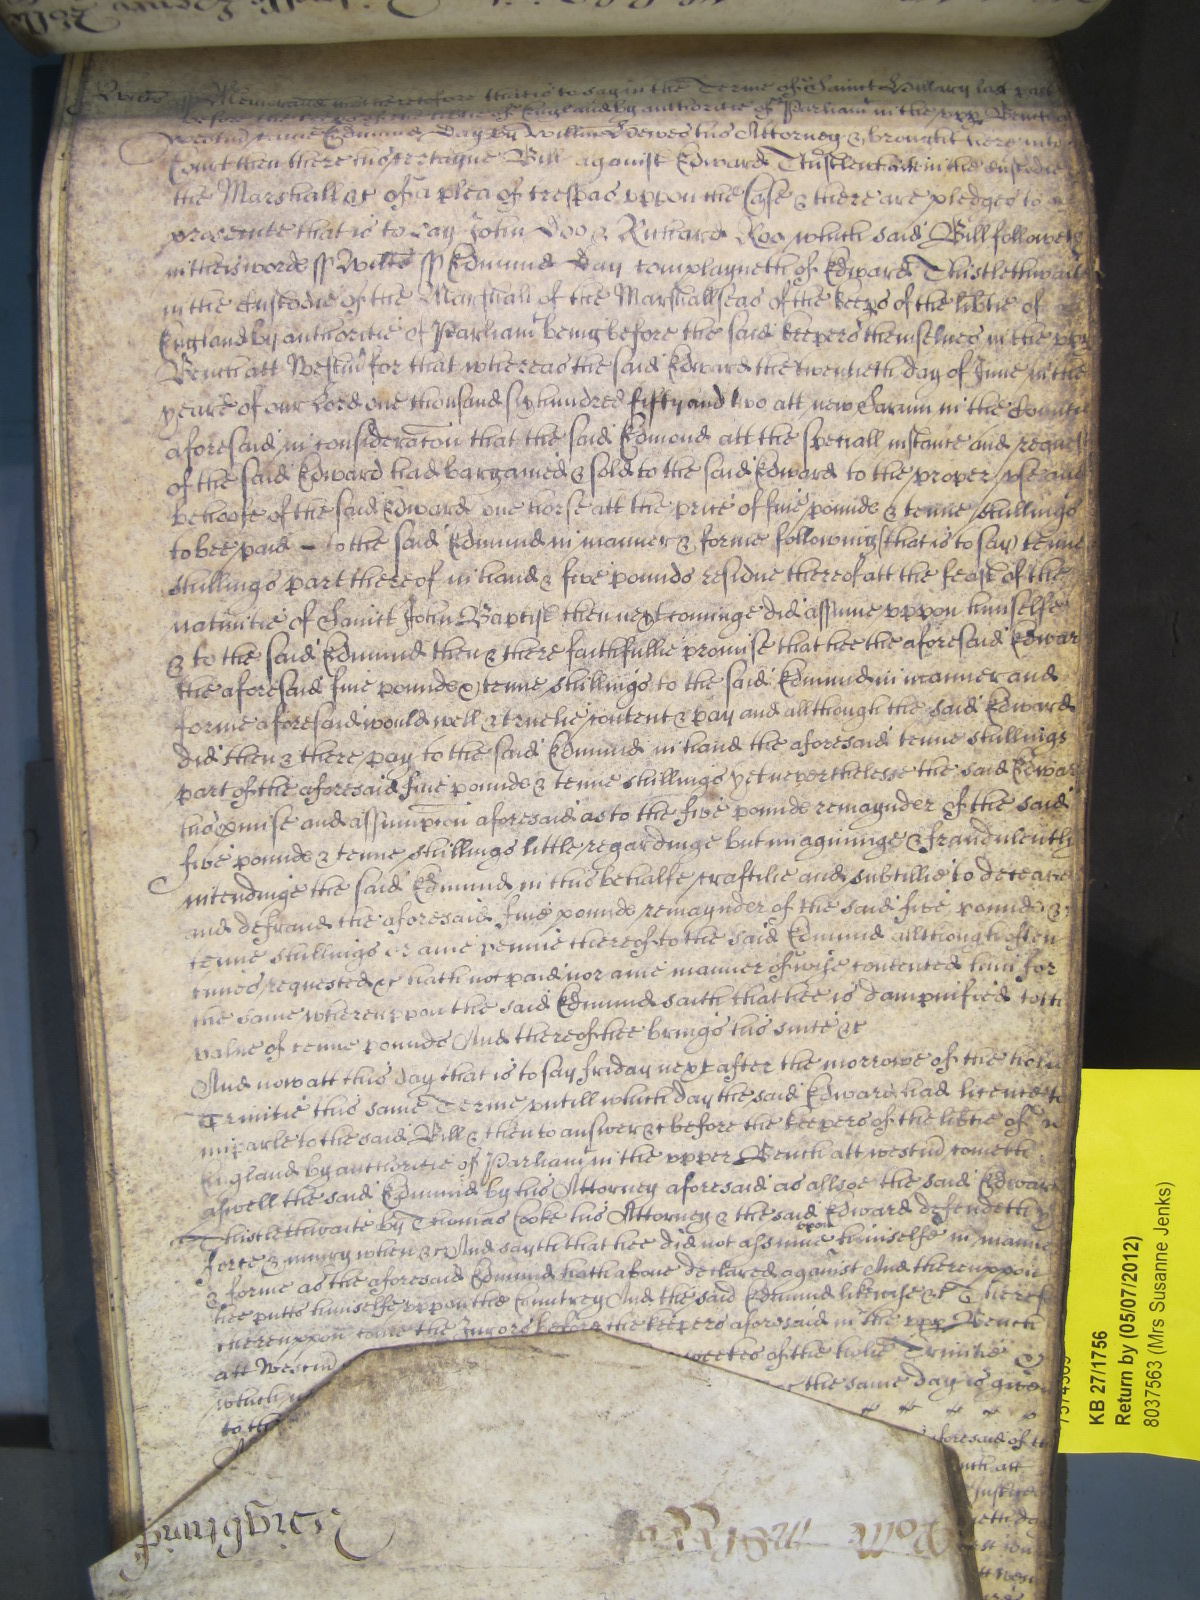 Wilts ss Memorand that heretofore that is to say in the Terme of Saint Hillary last past
before the keepers of the libtie of England by authoritie of Parliamt in the upp Bench att
Westm came Edmund Day by Willm Hewes his Attorney & brought here into
Court then there his certayne Bill against Edward Thistlethwaite in the custodie
the Marshall &c of a plea of trespas uppon the Case & there are pledges to
prosecute that is to say John Doo & Richard Roo which said Bill followeth
in theis words ss Wilts ss Edmund Day complayneth of Edward Thistlethwaite
in the custodie of the Marshall of the Marshallseas of the keeps of the libtie of
England by authoritie of Parliamt being before the said keepers themselves in the upp
Bench att Westm for that whereas the said Edward the twentieth day of June in the
yeare of our Lord one thousand six hundred fifty and two att new Sarum in the County
aforesaid in consideracon that the said Edmond att the speciall instance and request
of the said Edward had bargained & sold to the said Edward to the proper use and
behoofe of the said Edward one horse att the price of five pounds & tenne shillings
to bee paid - to the said Edmund in manner & forme following (that is to say) tenne
shillings part thereof in hand & five pounds residue thereof att the feast of the
nativitie of Saint John Baptist then next cominge did assume uppon himselfe
& to the said Edmund then & there faithfullie promise that hee the aforesaid Edward
the aforesaid five pounds & tenne shillings to the said Edmund in manner and
forme aforesaid would well & truelie content & pay and allthough the said Edward
did then & there pay to the said Edmund in hand the aforesaid tenne shillings
part of the aforesaid five pounds & tenne shillings yet neverthelesse the said Edward
his pmise and assumpcon aforesaid as to the five pounds remaynder of the said
five pounds & tenne shillings little regardinge but imagininge & fraudulently
intendinge the said Edmund in this behalfe craftilie and subtillie to deceave
and defraud the aforesaid five pounds remaynder of the said five pounds &
tenne shillings or anie pennie thereof to the said Edmund allthough often
times requested &c hath not paid nor anie manner of wise contented him for
the same whereuppon the said Edmund saith that hee is dampnified to the
value of tenne pounds And thereof hee brings his suite &c
And now att this day that is to say friday next after the morrowe of the holie
Trinitie this same Terme untill which day the said Edward had licence to
imparle to the said Bill & then to answer &c before the keepers of the libtie of
England by authoritie of Parliamt in the upper Bench att westm cometh
aswell the said Edmund by his Attorney aforesaid as allsoe the said Edward
Thistlethwaite by Thomas Cooke his Attorney & the said Edward defendeth
force & iniury when &c And sayth that hee did not assume upon himselfe in manner
& forme as the aforesaid Edmund hath above declared against And thereuppon
hee putts himselfe uppon the Countrey And the said Edmund likewise &c Theref
thereuppon come the Jurors before the keepers aforesaid in the upp Bench
att Westm weekes of the holie Trinitie &
which the same day is given
to the
aforesaid of the
att
Wightwick
Rolle
KB 27/1756
Return by (05/07/2012)
8037563 (Mrs Susanne Jenks)